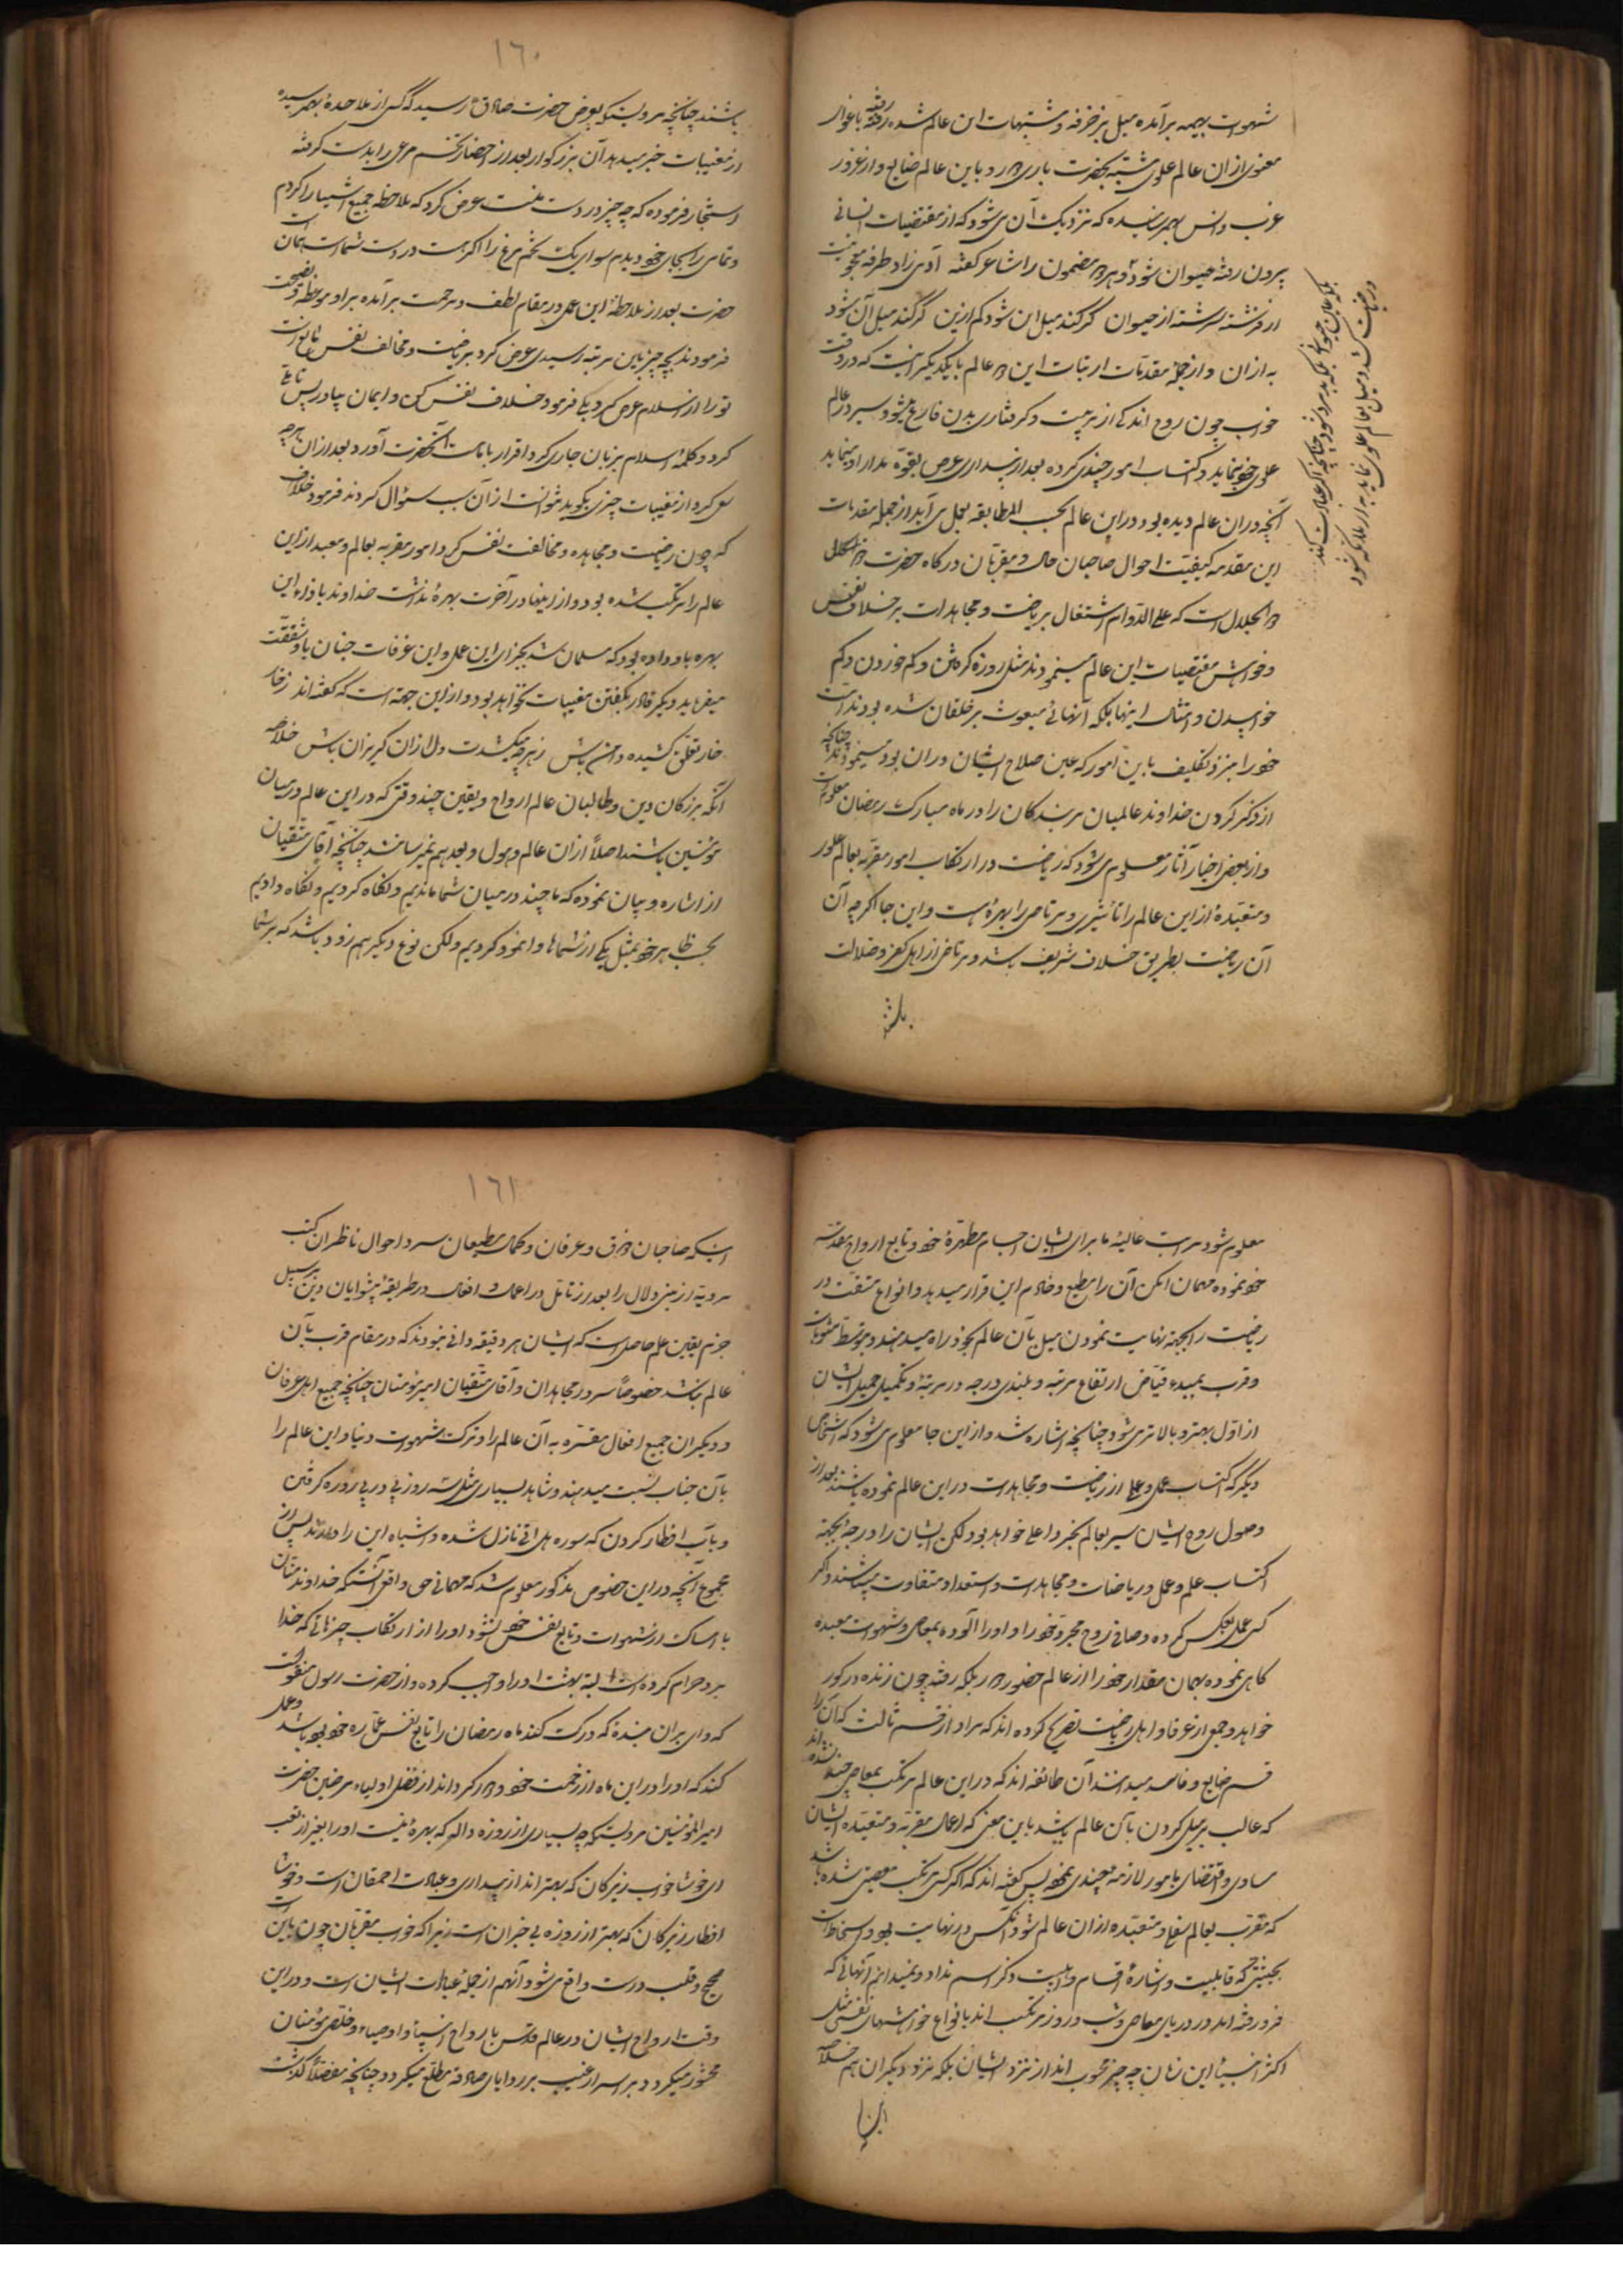 شهوات بهیمه برآمده میل بزخرفه و مشتهیات این عالم شده رفته رفته باغوای
معنوی از آن عالم علوی مشتبه بحضرت باری در رو باین عالم ضایع و از غرور
عزب و انس بهم رسانیده که نزدیک آن می‌شود که از مقتضیات انسانی
بیرون رفته حیوان شود و بهر مضمون را شاعر گفته آدمی زاد طرفه معجونیست
از فرشته سرشته از حیوان گر کند میل این شود کم ازین گر کند میل آن شود
به از آن و از جمله مقدمات ارتباط این دو عالم بایکدیگر اینست که در وقت
خواب چون روح اندکی از تربیت و گرفتاری بدن فارغ میشود سیر در عالم
علوی خود نماید و اکتساب امور چندی کرده بعد از بیداری عرض بقوه مدار او مینماید
آنچه در آن عالم دیده بود در این عالم بحسب المطابقه بعمل می‌آید از جمله مقدمات
این مقدمه کیفیت احوال صاحبان حال و مقربان درگاه حضرت ذو
الجلال است که علی الدوام اشتغال بریاضت و مجاهدات بر خلاف نفس
و خواهش مقتضیات این عالم مینمودند مثل روزه گرفتن و کم خوردن و کم
خوابیدن و امثال اینها بلکه آنهائی مبعوث بر خلقان شده بودند امت
خود را نیز تکلیف باین امور که عین صلاح ایشان در آن بود مینمودند چنانچه
از ذکر کردن خداوند عالمیان مر بندگان را در ماه مبارک رمضان معلوم است
و از بعض اخبار و آثار معلوم می‌شود که ریاضت در ارتکاب امور مقربه بعالم علو
و مبعده از این عالم را تاثیری و مرتاض را بهره هست و این جا اگرچه آن
آن ریاضت بطریق خلاف شریف باشد و مرتاض از اهل کفر و ضلالت
باشند
بلکه عین حیوان بلکه بدتر میشود چنانچه اگر عبادت کند
و ریاضت کشد و میل بعالم علوی نماید به از ملائکه شود
۱٦۰
باشند چنانچه مرویست که بعرض حضرت صادق رسید که کسی از ملاحده بهم رسیده
از مغیبات خبر میدهد آن بزرگوار بعد از احضار تخم مرغی را بدست گرفته
استخبار فرموده که چه چیز در دست منست عرض کرد که ملاحظه جمیع اشیا را کردم
و تمامی را بجای خود دیدم سوای یک تخم مرغ را اگر هست در دست شماست همان است
حضرت بعد از ملاحظه این عمل در مقام لطف و مرحمت برآمده بر او موعظه و نصیحت
فرمودند بچه چیز باین مرتبه رسیدی عرض کرد بریاضت و مخالف نفس
تو را از اسلام عرض کرد یکی فرمود خلاف نفس کن و ایمان بیاور پس تاملی
کرد و کلمه اسلام بر زبان جاری کرد اقرار بامامت آنحضرت آورد بعد از آن هرچه
سعی کرد از مغیبات چیزی بگوید نتوانست از آن سبب سئوال کردند فرمود
که چون ریاضت و مجاهده و مخالفت نفس کرد امور مقربه بعالم و مبعد از این
عالم را مرتکب شده بود و از اینها در آخرت بهره نداشت خداوند باز این
بهره باو داده بود که مسلمان شد بجزای این عمل و این غرفات جنان باو شفقت
میفرماید دیگر قادر بگفتن مغیبات نخواهد بود و از این جهة است که گفته‌اند
خار تعلق کشیده دامن باش زهرچه میکشدت دل از آن گریزان باش خلاصه
آنکه بزرگان دین و طالبان عالم ارواح و یقین چند وقتی که در این عالم در میان
مؤمنین باشند اصلا از آن عالم و بعد هم نمیرسانند چنانچه آقای متقیان
از اشاره و بیان نموده که ما چند در میان شما ماندیم و نگاه کردیم و نگاه دادیم
بحسب ظاهر خود بمثل یکی از شماها وانمود کردیم ولکن نوع دیگر هم زود باشد که بر شما
معلوم شود مراتب عالیه ما برای ایشان اجسام مطهره خود و تابع ارواح مقدسه
خود نموده مهما امکن آن را مطیع و خادم این قرار میدهد و انواع مشقت در
ریاضت را بجهة نهایت نمودن میل بآن عالم بخود راه میدهند و بتوسط مثوبات
و قرب بمبدء فیاض ارتفاع مرتبه و بلندی درجه در مرتبه و تکمیل جمیل ایشان
از اول بهتر و بالاتر می‌شود چنانچه اشاره شد و از این جا معلوم می‌شود که اشخاص
دیگر که اکتساب عمل و علم از ریاضت و مجاهدات در این عالم نموده باشند بعد از
وصول روح ایشان سیر بعالم تجرد اعلی خواهد بود لکن ایشان را درجه بجهة
اکتساب علم و عمل و ریاضات و مجاهدات و استعداد متفاوت میباشند و اگر
کسی عمل بعکس کرده و صافی روح مجرد خود را و او را آلوده بمعاصی و شهوات مبعده
کاهی نموده بهمان مقدار خود را از عالم حضور دور بلکه رفته چون زنده در گور
خواهد و جمع از عرفا و اهل ریاضت تصریح کرده‌اند که مراد از قسم ثالث که آن را
قسم ضایع و فاسد میدانند آن طائفه‌اند که در این عالم مرتکب بمعاصی چند شده‌اند
که غالب بر میل کردن بآن عالم باشد باین معنی که اعمال مقربه و مبعده ایشان
مساوی و اقتضای بامور لازمه چندی نموده پس گفته‌اند که اگر کسی مرتکب معصیتی شده باشد
که مقرب بعالم سفلی و مبعده از آن عالم شود آنکس در نهایت بعد و انحطاط است
بحیثیتی که قابلیت و اشاره اقسام و اهلیت ذکر اسم ندارد و نمیدانم آنهائی که
فرو رفته‌اند در دریای معاصی و شب و روز مرتکب‌اند بانواع خواهشهای نفسی مثل
اکثر اغنیاء این زمان چه چیز محسوب‌اند از نزد ایشان بلکه نزد دیگران هم خلاصه
این
۱٦۱
اینکه صاحبان ذوق و عرفان و کملت مطیعان سرد احوال ناظران کتب
مرویه از مبنی و دلال را بعد از تامل در اعمال و افعال در طریقه پیشوایان دین بر سبیل
جزم یقین علم حاصل است که ایشان هر دقیقه دانی نبودند که در مقام قرب بآن
عالم نباشند خصوصاً سرور مجاهدان و آقای متقیان امیر مؤمنان چنانچه جمیع اهل عرفان
و دیگران جمیع افعال مقربه به آن عالم را و ترک شهوات دنیا و این عالم را
بآن جناب نسبت میدهند و شاهد بسیاری مثل سه روز پی در پی روزه گرفتن
و بآب افطار کردن که سوره هل اتی نازل شده و اشباه این را دارند پس از
مجموع آنچه در این خصوص مذکور معلوم شد که مهمانی حق واقعی آنستکه خداوند منان
با امساک از شهوات و تابع نفس خود نشود او را از ارتکاب چیزهائی که خدا
بر او حرام کرده است البته بهشت او را واجب کرده و از حضرت رسول منقولست
که وای بر آن بنده که درک کند ماه رمضان را و تابع نفس اماره خود بوده باشد و عمل
کند که او را در این ماه از رحمت خود دور گرداند از فضل اولیاء مرضیین حضرت
امیر المؤمنین مرویستکه چه بسیاری از روزه دار که بهره نیست او را بغیر از تعب
ای خوشا خواب زیرکان که بهتر اند از بیداری و عبادت احمقان است و خوشا
افطار زیرکان که بهتر از روزه بی‌خبران است زیرا که خواب مقربان چون باین
صحیح و قلب درست واقع می‌شود آنهم از جمله عبادات ایشان است و در این
وقت ارواح ایشان در عالم قدس با ارواح انبیا و اوصیاء و خلص مؤمنان
محشور میگردد و بر اسرار غیب بر رویای صادقه مطلع میگردد چنانچه مفصلاً گذشت